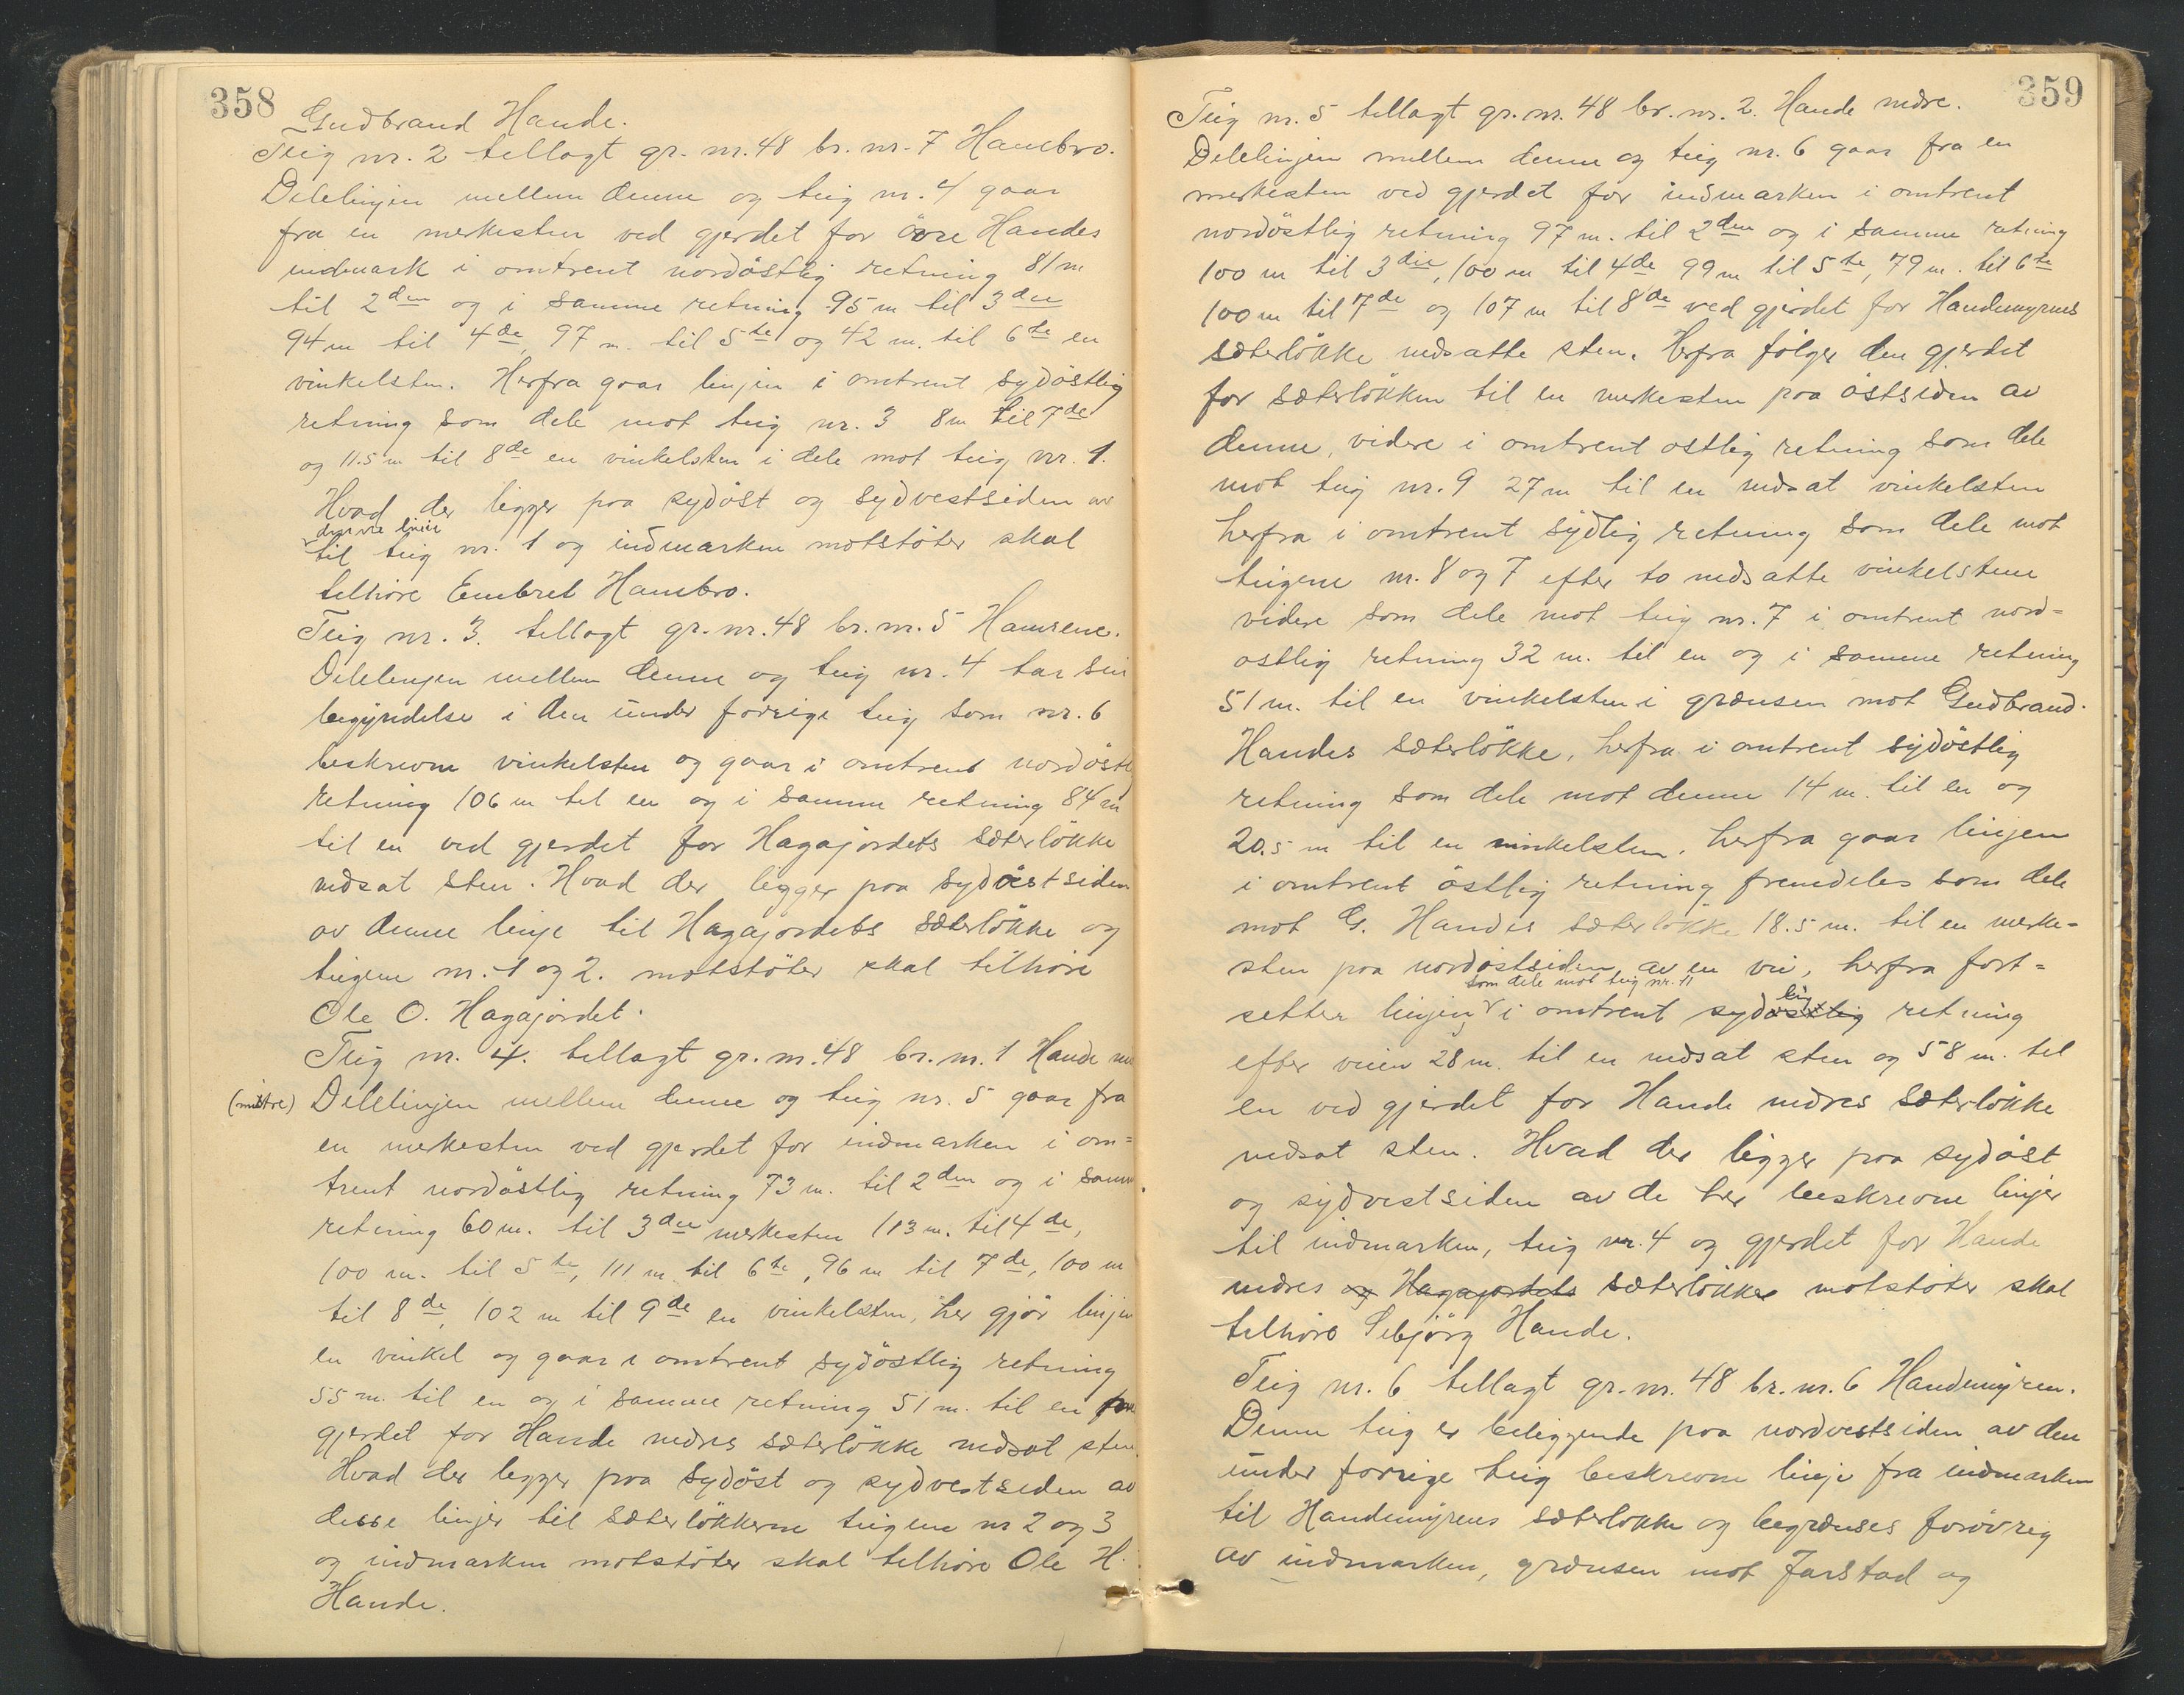 358
Gudbrand Hande.
Teig nr. 2 tillagt gr. nr. 48 br. nr. 7 Hambro.
Delelinjen mellem denne og teig nr. 4 gaar
fra en merkesten ved gjerdet for övre Handes
indmark i omtrent nordöstlig retning 81 m
til 2den og i samme retning 95 m til 3die
94 m til 4de, 97 m. til 5te og 42 m. til 6te en
vinkelsten. Herfra gaar linjen i omtrent sydöstlig
retning som dele mot teig nr. 3 8 m til 7de
og 11.5 m til 8de en vinkelsten i dele mot teig nr. 1.
Hvad der ligger paa sydöst og sydvestsiden av
denne linie
til teig nr. 1 og indmarken motstöter skal
tilhöre Embret Hambro.
Teig nr. 3. tillagt gr. nr. 48 br. nr. 5 Hamrene.
Delelinjen mellem denne og teig nr. 4 tar sin
begyndelse i den under forrige teig som nr. 6
beskrevne vinkelsten og gaar i omtrent nordöstl
retning 106 m til en og i samme retning 84 m
til en ved gjerdet for Hagajordets sæterlökke
nedsat sten. Hvad der ligger paa sydöstsiden
av denne linje til Hagajordets sæterlökke og
teigene nr. 1 og 2. motstöter skal tilhöre
Ole O. Hagajordet.
Teig nr. 4. tillagt gr. nr. 48 br. nr. 1 Hande
(midtre) Delelinjen mellem denne og teig nr. 5 gaar fra
en merkesten ved gjerdet for indmarken i om=
trent nordöstlig retning 73 m. til 2den og i samme
retning 60 m. til 3die merkesten 113 m. til 4de,
100 m. til 5te, 111 m til 6te, 96 m til 7de, 100 m
til 8de, 102 m til 9de en vinkelsten, her gjör linjen
en vinkel og gaar i omtrent sydöstlig retning
55 m. til en og i samme retning 51 m. til en
gjerdet for Hande nedres sæterlökke nedsat sten.
Hvad der ligger paa sydöst og sydvestsiden av
disse linjer til sæterlökkerne teigene nr 2 og 3
og indmarken motstöter skal tilhöre Ole H.
Hande.
359
Teig nr. 5 tillagt gr. nr. 48 br. nr. 2. Hande nedre.
Delelinjen mellem denne og teig nr. 6 gaar fra en
merkesten ved gjerdet for indmarken i omtrent
nordöstlig retning 97 m. til 2den og i samme retning
100 m til 3die, 100 m til 4de 99 m til 5te, 79 m. til 6te
100 m til 7de og 107 m til 8de ved gjerdet for Handemyrens
sæterlökke nedsatte sten. Herfra fölger den gjerdet
for sæterlökken til en merkesten paa östsiden av
denne, videre i omtrent ostlig retning som dele
mot teig nr. 9 27 m til en nedsat vinkelsten
herfra i omtrent sydlig retning som dele mot
teigene nr. 8 og 7 efter to nedsatte vinkelstene
videre som dele mot teig nr. 7 i omtrent nord=
ostlig retning 32 m. til en og i samme retning
51 m. til en vinkelsten i grænsen mot Gudbrand
Handes sæterlökke, herfra i omtrent sydöstlig
retning som dele mot denne 14 m. til en og
20.5 m til en vinkelsten. herfra gaar linjen
i omtrent östlig retning fremdeles som dele
mot G. Handes sæterlökke 18.5 m. til en merke=
sten paa nordöstsiden av en vei, herfra fort=
som dele mot teig nr. 11 lig
setter linjen i omtrent sydöstlig retning
efter veien 28 m. til en nedsat sten og 58 m. til
en ved gjerdet for Hande nedres sæterlökke
nedsat sten. Hvad der ligger paa sydöst
og sydvestsiden av de her beskrevne linjer
til indmarken, teig nr. 4 og gjerdet for Hande
nedres og Hagajordets sæterlökke motstöter skal
tilhöre Sebjörg Hande.
Teig nr. 6 tillagt gr. nr. 48 br. nr. 6 Handemyren.
Denne teig er beliggende paa nordvestsiden av den
under forrige teig beskrevne linje fra indmarken
til Handemyrens sæterlökke og begrænses forövrig
av indmarken, grænsen mot Jarstad og